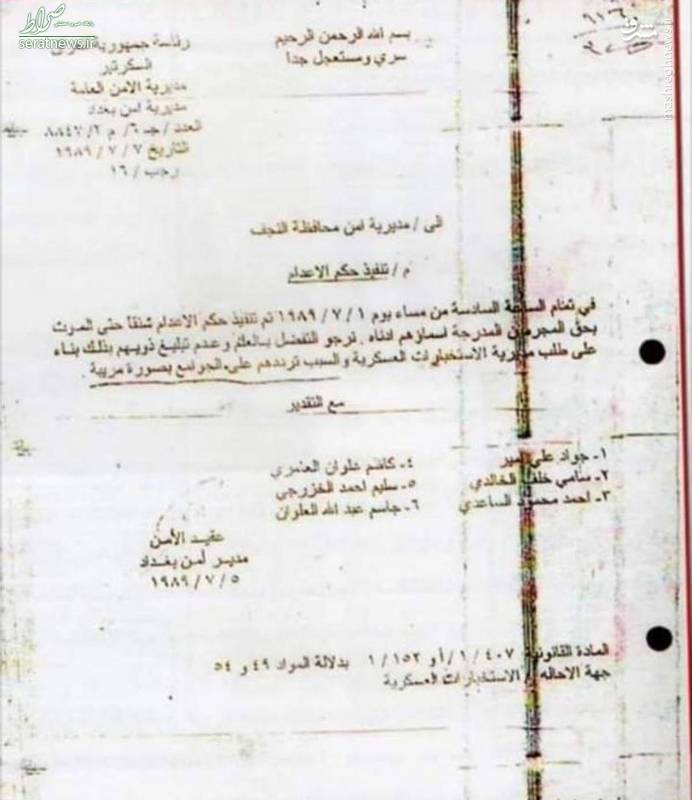 صراط
seratnews.ir
mashreghnews.ir
بسم الله الرحمن الرحيم
سري ومستعجل جدا
رئاسة جمهورية
السكرتير
مديرية الامن العامة
مديرية امن بغداد
العدد / جـ ٦/ م ٨٨٤٧/٢
التاريخ ٧ / ٧ / ١٩٨٩
رجب / ١٦
الى / مديرية امن محافظة النجف
م / تنفيذ حكم الاعدام
في تمام الساعة السادسة من مساء يوم ١ / ٧ / ١٩٨٩ تم تنفيذ حكم الاعدام شنقا حتى الموت
بحق المجرمين المدرجة اسماؤهم ادناه . نرجو التفضل بالعلم وعدم تبليغ ذويهم بذلك بناء
على طلب مديرية الاستخبارات العسكرية والسبب ترددهم على الجوامع بصورة مريبة .
مع التقدير
١- جواد علي ٤- كاظم علوان العامري
٢- سامي خلف الخالدي ٥- سليم احمد الخزرجي
٣- احمد محمود الساعدي ٦- جاسم عبد الله العلوان
عقيد الأمن
مدير أمن بغداد
٥ / ٧ / ١٩٨٩
المادة القانونية ٤٠٧ / ١ / أ و ١٥٣ / ١ بدلالة المواد ٤٩ و ٥٤
جهة الاحالة / الاستخبارات العسكرية